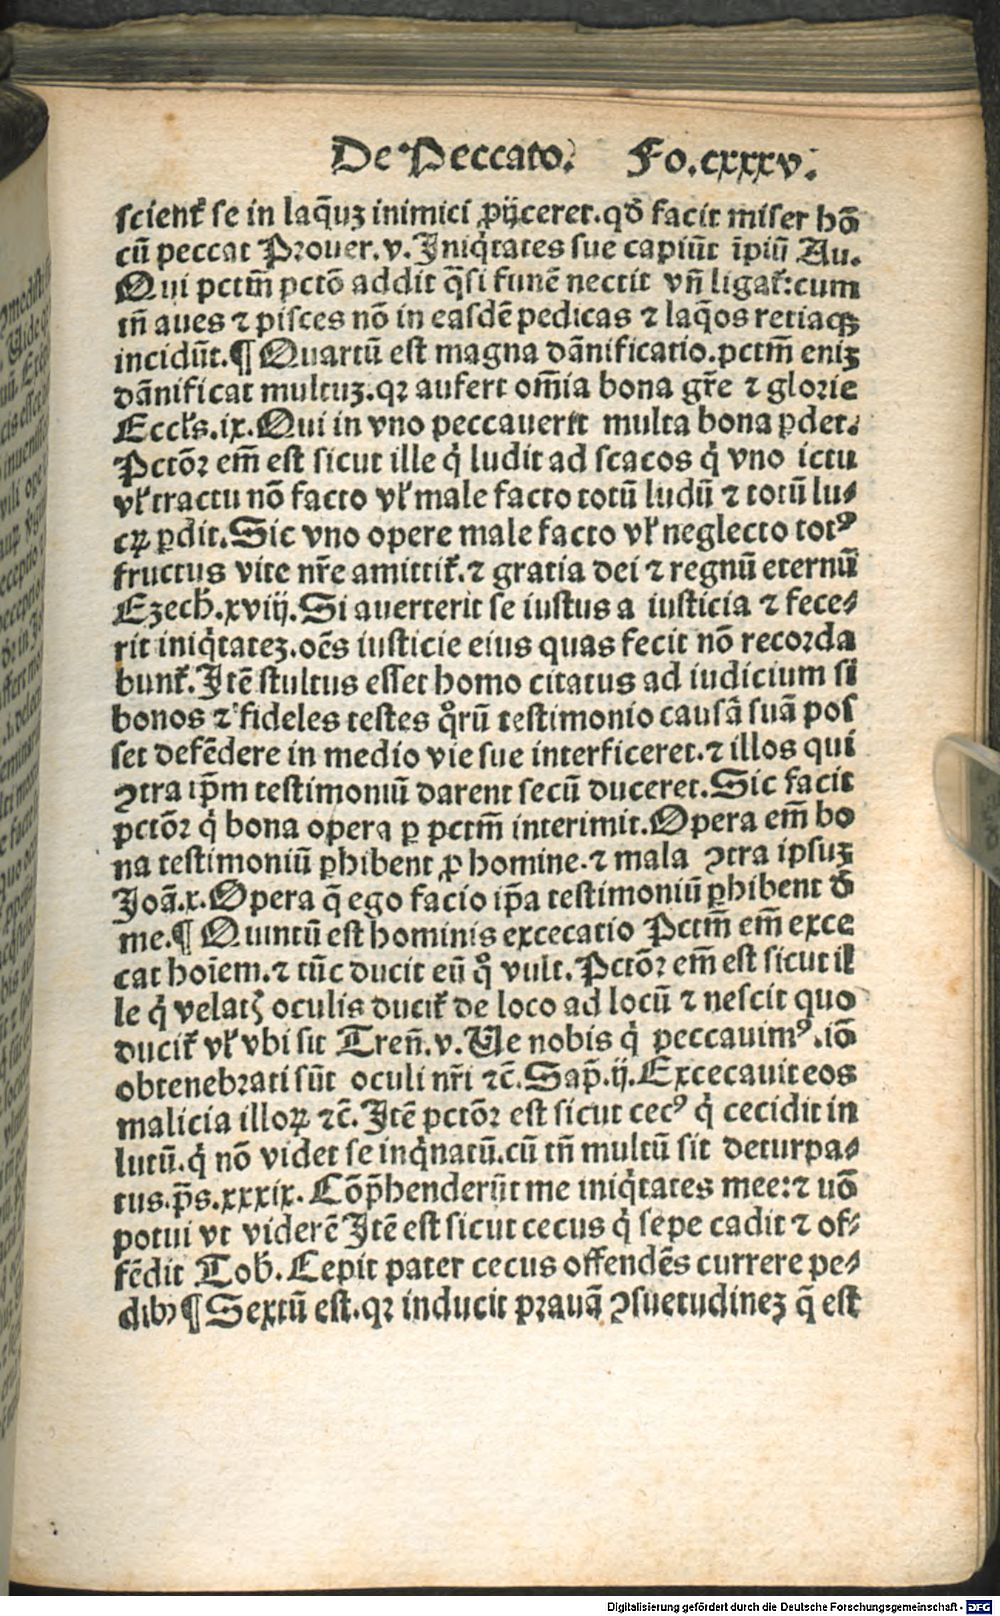 De Peccato. Fo.cxxxv.
scient᷑ se in laq̄uꝫ inimici ꝓijceret.qd̄ facit miser hō
cū peccat Prouer.v.Iniq̇tates sue capiūt īpiū Au.
Qui pctm̄ pctō addit q̄si funē nectit vn̄ ligat᷑:cum
tn̄ aues ⁊ pisces nō in easdē pedicas ⁊ laq̄os retiaqꝫ
incidūt.¶ Quartū est magna dānificatio.pctm̄ eniꝫ
dānificat multuꝫ.qꝛ aufert om̄ia bona gr̄e ⁊ glorie
Eccl̓s.ix.Qui in vno peccauerit multa bona ꝑdet.
Pctōꝛ em̄ est sicut ille q̇ ludit ad scacos q̇ vno ictu
vl̓ tractu nō facto vl̓ male facto totū ludū ⁊ totū lu⸗
cꝝ ꝑdit.Sic vno opere male facto vl̓ neglecto totꝰ
fructus vite nr̄e amittit᷑.⁊ gratia dei ⁊ regnū eternū
Ezech̓.xviij.Si auerterit se iustus a iusticia ⁊ fece⸗
rit iniq̇tateꝫ.oēs iusticie eius quas fecit nō recorda
bunt᷑.Itē stultus esset homo citatus ad iudicium si
bonos ⁊ fideles testes qͦrū testimonio causā suā pos
set defēdere in medio vie sue interficeret.⁊ illos qui
ꝯtra ip̄m testimoniū darent secū duceret.Sic facit
pctōꝛ q̇ bona opera ꝑ pctm̄ interimit.Opera em̄ bo
na testimoniū ꝑhibent ꝓ homine.⁊ mala ꝯtra ipsuꝫ
Joā.x.Opera q̄ ego facio ip̄a testimoniū ꝑhibent d̄
me.¶ Quintū est hominis excecatio Pctm̄ em̄ exce
cat hoīem.⁊ tūc ducit eū qͦ vult.Pctōꝛ em̄ est sicut il
le q̇ velatꝭ oculis ducit᷑ de loco ad locū ⁊ nescit quo
ducit᷑ vl̓ vbi sit Tren̄.v.Ue nobis q̇ peccauimꝰ.iō
obtenebꝛati sūt oculi nr̄i ⁊c̄.Sap̄.ij.Excecauit eos
malicia illoꝝ ⁊c̄.Itē pctōꝛ est sicut cecꝰ q̇ cecidit in
lutū.q̇ nō videt se inq̇natū.cū tn̄ multū sit deturpa⸗
tus.p̄s.xxxix.Cōp̄henderūt me iniq̇tates mee:⁊ nō
potui vt viderē Itē est sicut cecus q̇ sepe cadit ⁊ of⸗
fēdit Tob̓.Cepit pater cecus offendēs currere pe⸗
dibꝫ ¶ Sextū est.qꝛ inducit pꝛauā ꝯsuetudineꝫ q̄ est
Digitalisierung gefördert durch die Deutsche Forschungsgemeinschaft - DFG